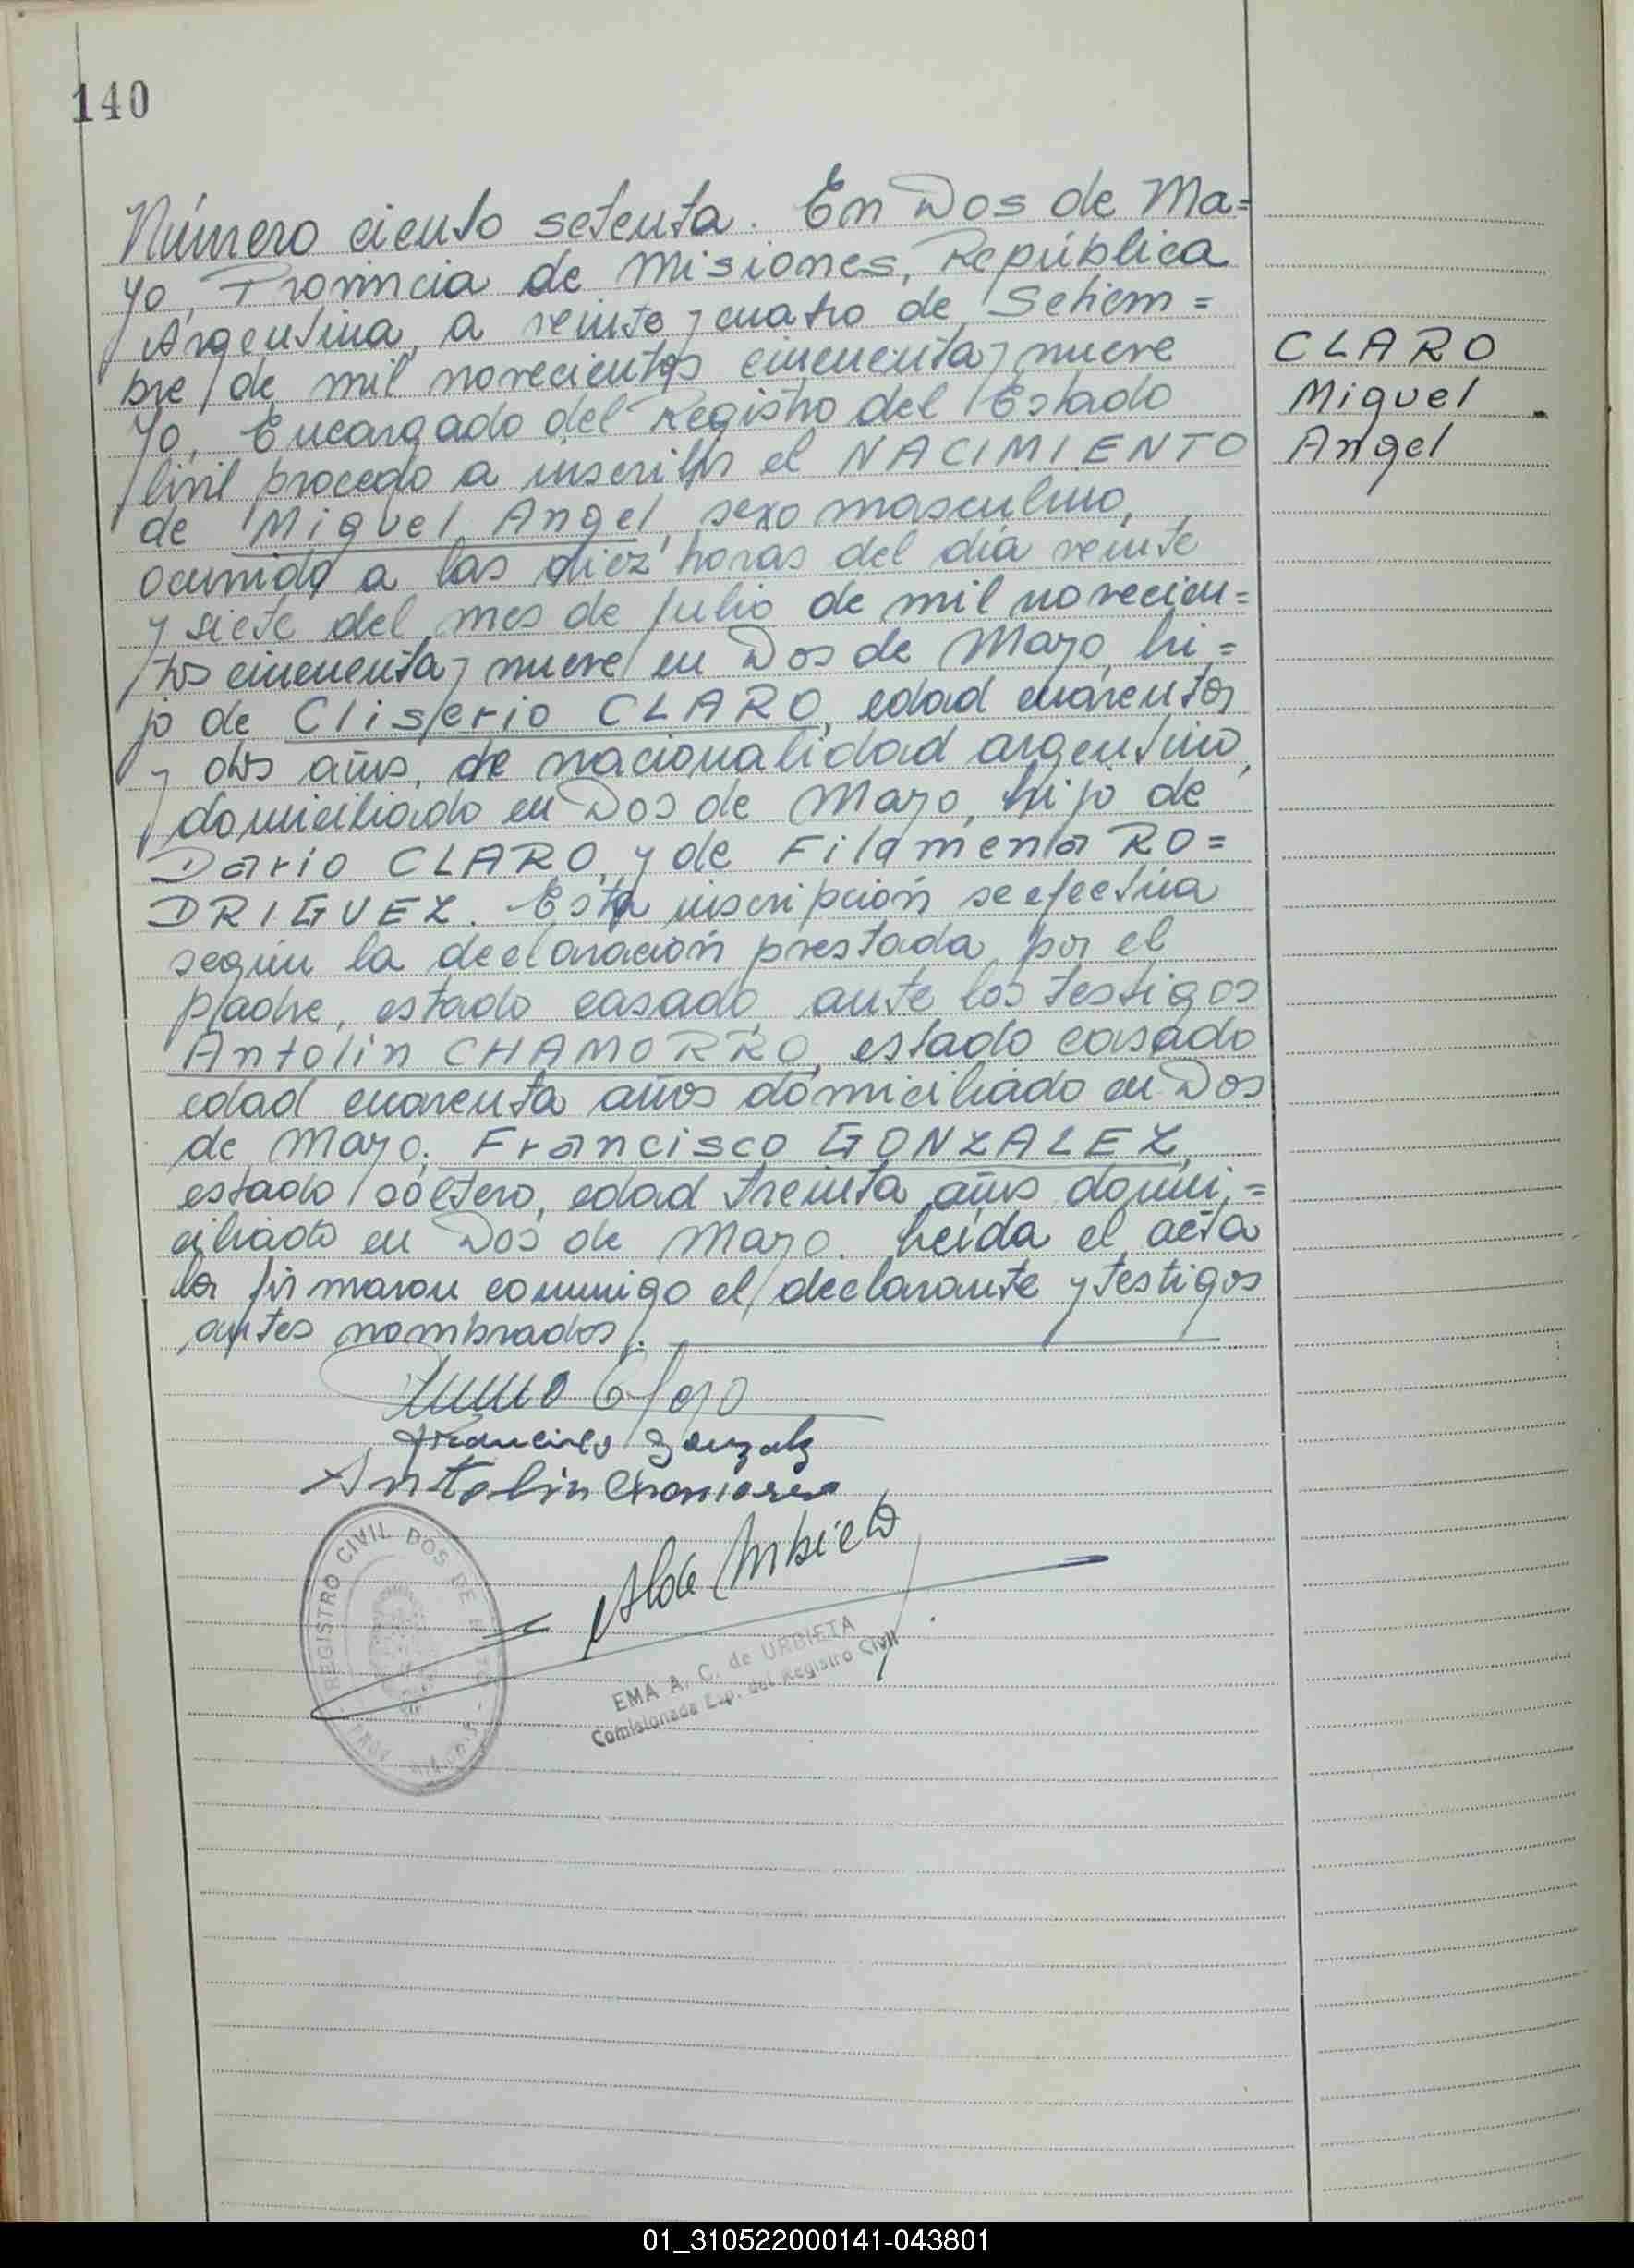 140
Número ciento setenta. En Dos de Ma=
yo, Provincia de Misiones, República
Argentina, a veinte y cuatro de Setiem=
bre de mil novecientos cincuenta y nueve
Yo, Encargado del Registro del Estado
Civil procedo a inscribir el NACIMIENTO
de Miguel Angel, sexo masculino,
ocurrido a las diez horas del día veinte
y siete del mes de Julio de mil novecien=
tos cincuenta y nueve en Dos de Mayo, hi=
jo de Clisterio CLARO, edad cuarenta
y dos años, de nacionalidad argentino,
domiciliado en Dos de Mayo, hijo de
Dario CLARO, y de Filamenta RO=
DRIGUEZ. Esta inscripción se efectúa
según la declaración prestada por el
padre, estado casado, ante los testigos
Antolin CHAMORRO, estado casado
edad cuarenta años domiciliado en Dos
de Mayo; Francisco GONZALEZ,
estado soltero, edad treinta años domi,=
ciliado en Dos de Mayo. Leída el acta
la firmaron conmigo el declarante y testigos
antes nombrados.
CLARO
Miguel
Angel
Francisco Gonzalz
Antolin Chamorro
REGISTRO CIVIL DOS DE
EMA A. C. de URBIETA
Comisionada Esp. del Registro Civil
01_310522000141-043801